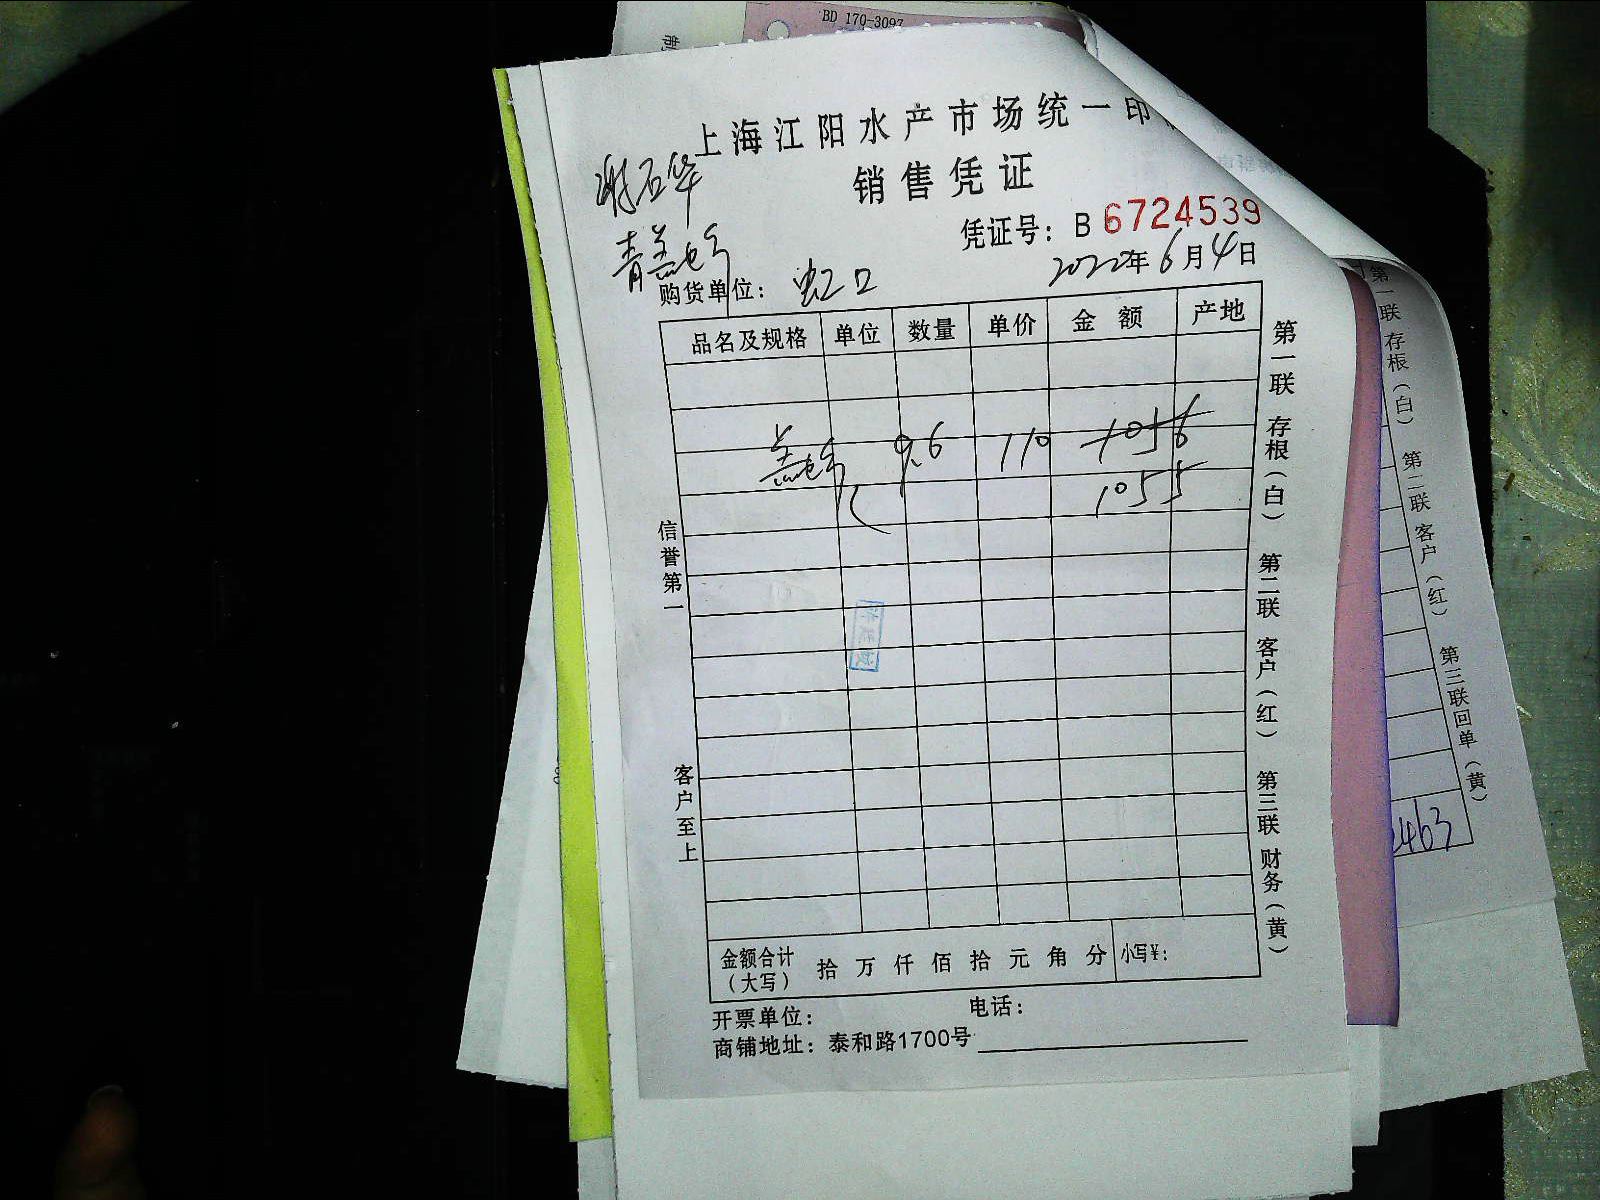 BD 170-3097
上海江阳水产市场统一印
销售凭证
凭证号：B 6724539
谢石华
青盖
2022年6月4日
购货单位：虹口
品名及规格 单位 数量 单价 金额 产地
盖 9.6 110 1056
1055
信誉第一
客户至上
第一联 存根（白） 第二联 客户（红） 第三联 财务（黄）
金额合计（大写） 拾 万 仟 佰 拾 元 角 分 小写¥：
开票单位： 电话：
商铺地址：泰和路1700号
第一联 存根（白） 第二联 客户（红） 第三联 回单（黄）
2463